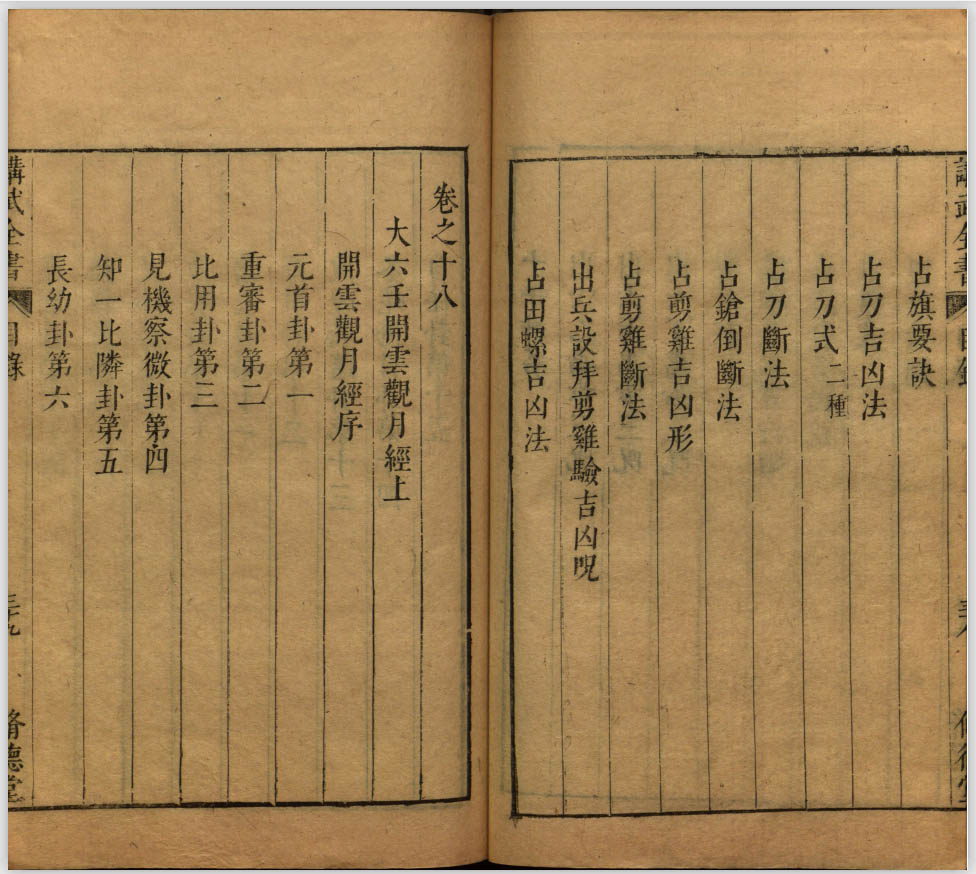 講武全書
目錄
占旗要訣
占刀吉凶法
占刀式二種
占刀斷法
占鎗倒斷法
占剪雞吉凶形
占剪雞斷法
出兵設拜剪雞驗吉凶呪
占田螺吉凶法
卷之十八
大六壬開雲觀月經上
開雲觀月經序
元首卦第一
重審卦第二
比用卦第三
見機察微卦第四
知一比隣卦第五
長幼卦第六
講武全書
目錄
脩德堂